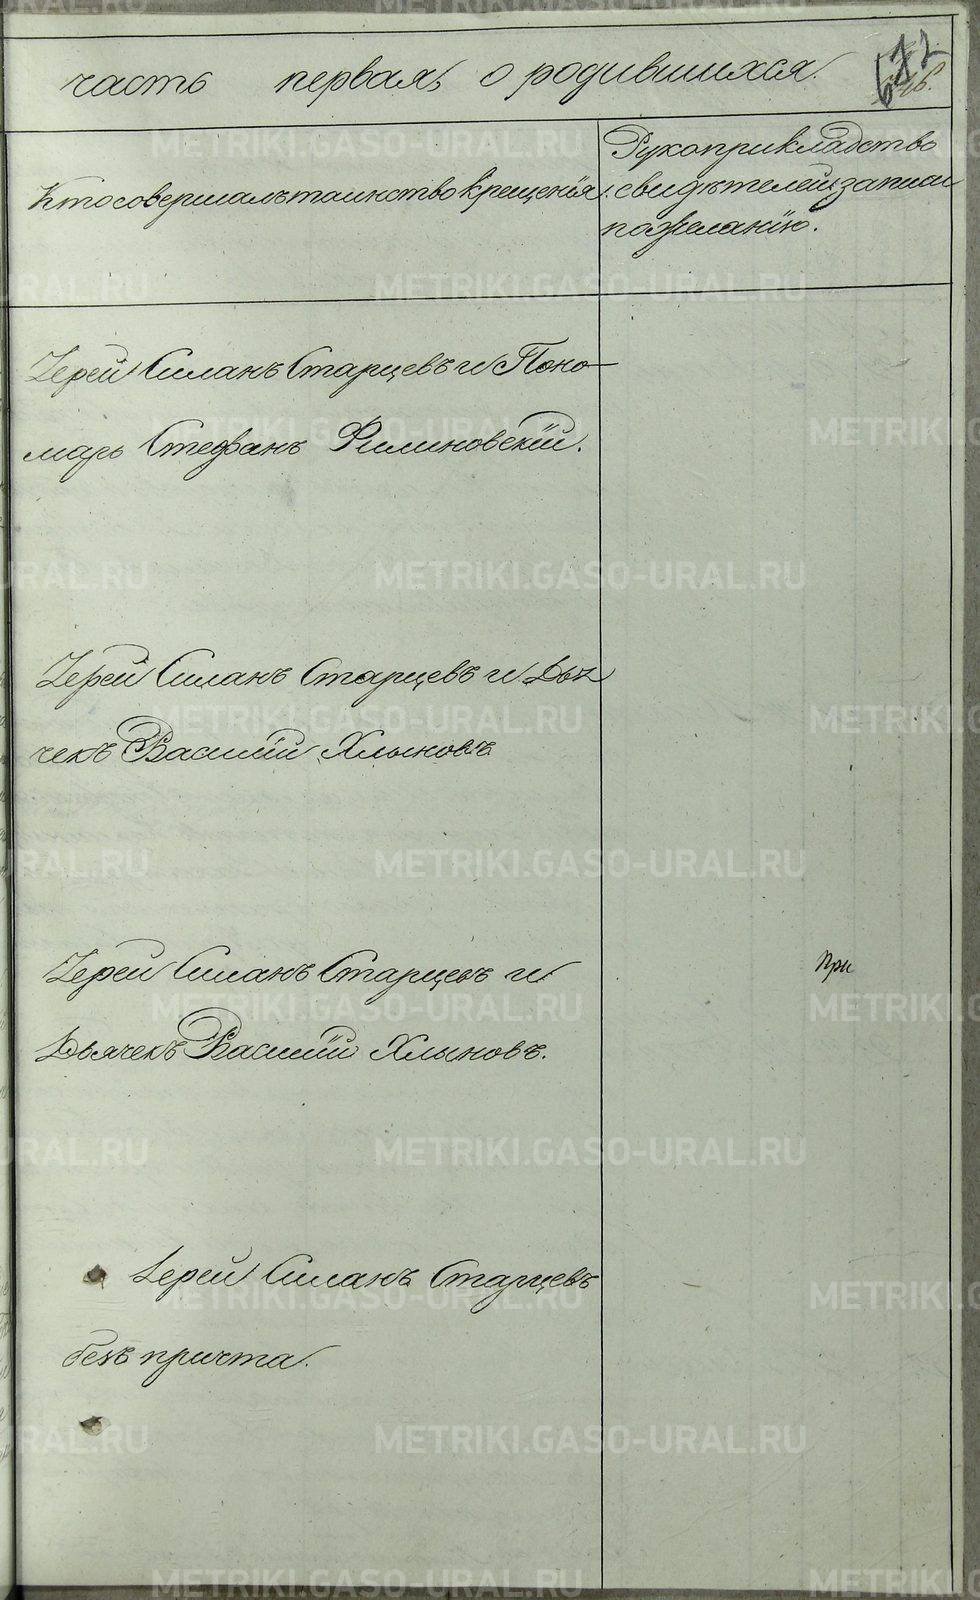 часть первая, о родившихся. 672
Кто совершалъ таинство крещенія.
Рукоприкладство
свидѣтелей записи
по желанію.
Іерей Силанъ Старцевъ и Поно-
марь Стефанъ Филиновскій.
Іерей Силанъ Старцевъ и Дья
чекъ Василій Хлыновъ
Іерей Силанъ Старцевъ и
Дьячекъ Василій Хлыновъ.
При
Іерей Силанъ Старцевъ
безъ причта.
METRIKI.GASO-URAL.RU